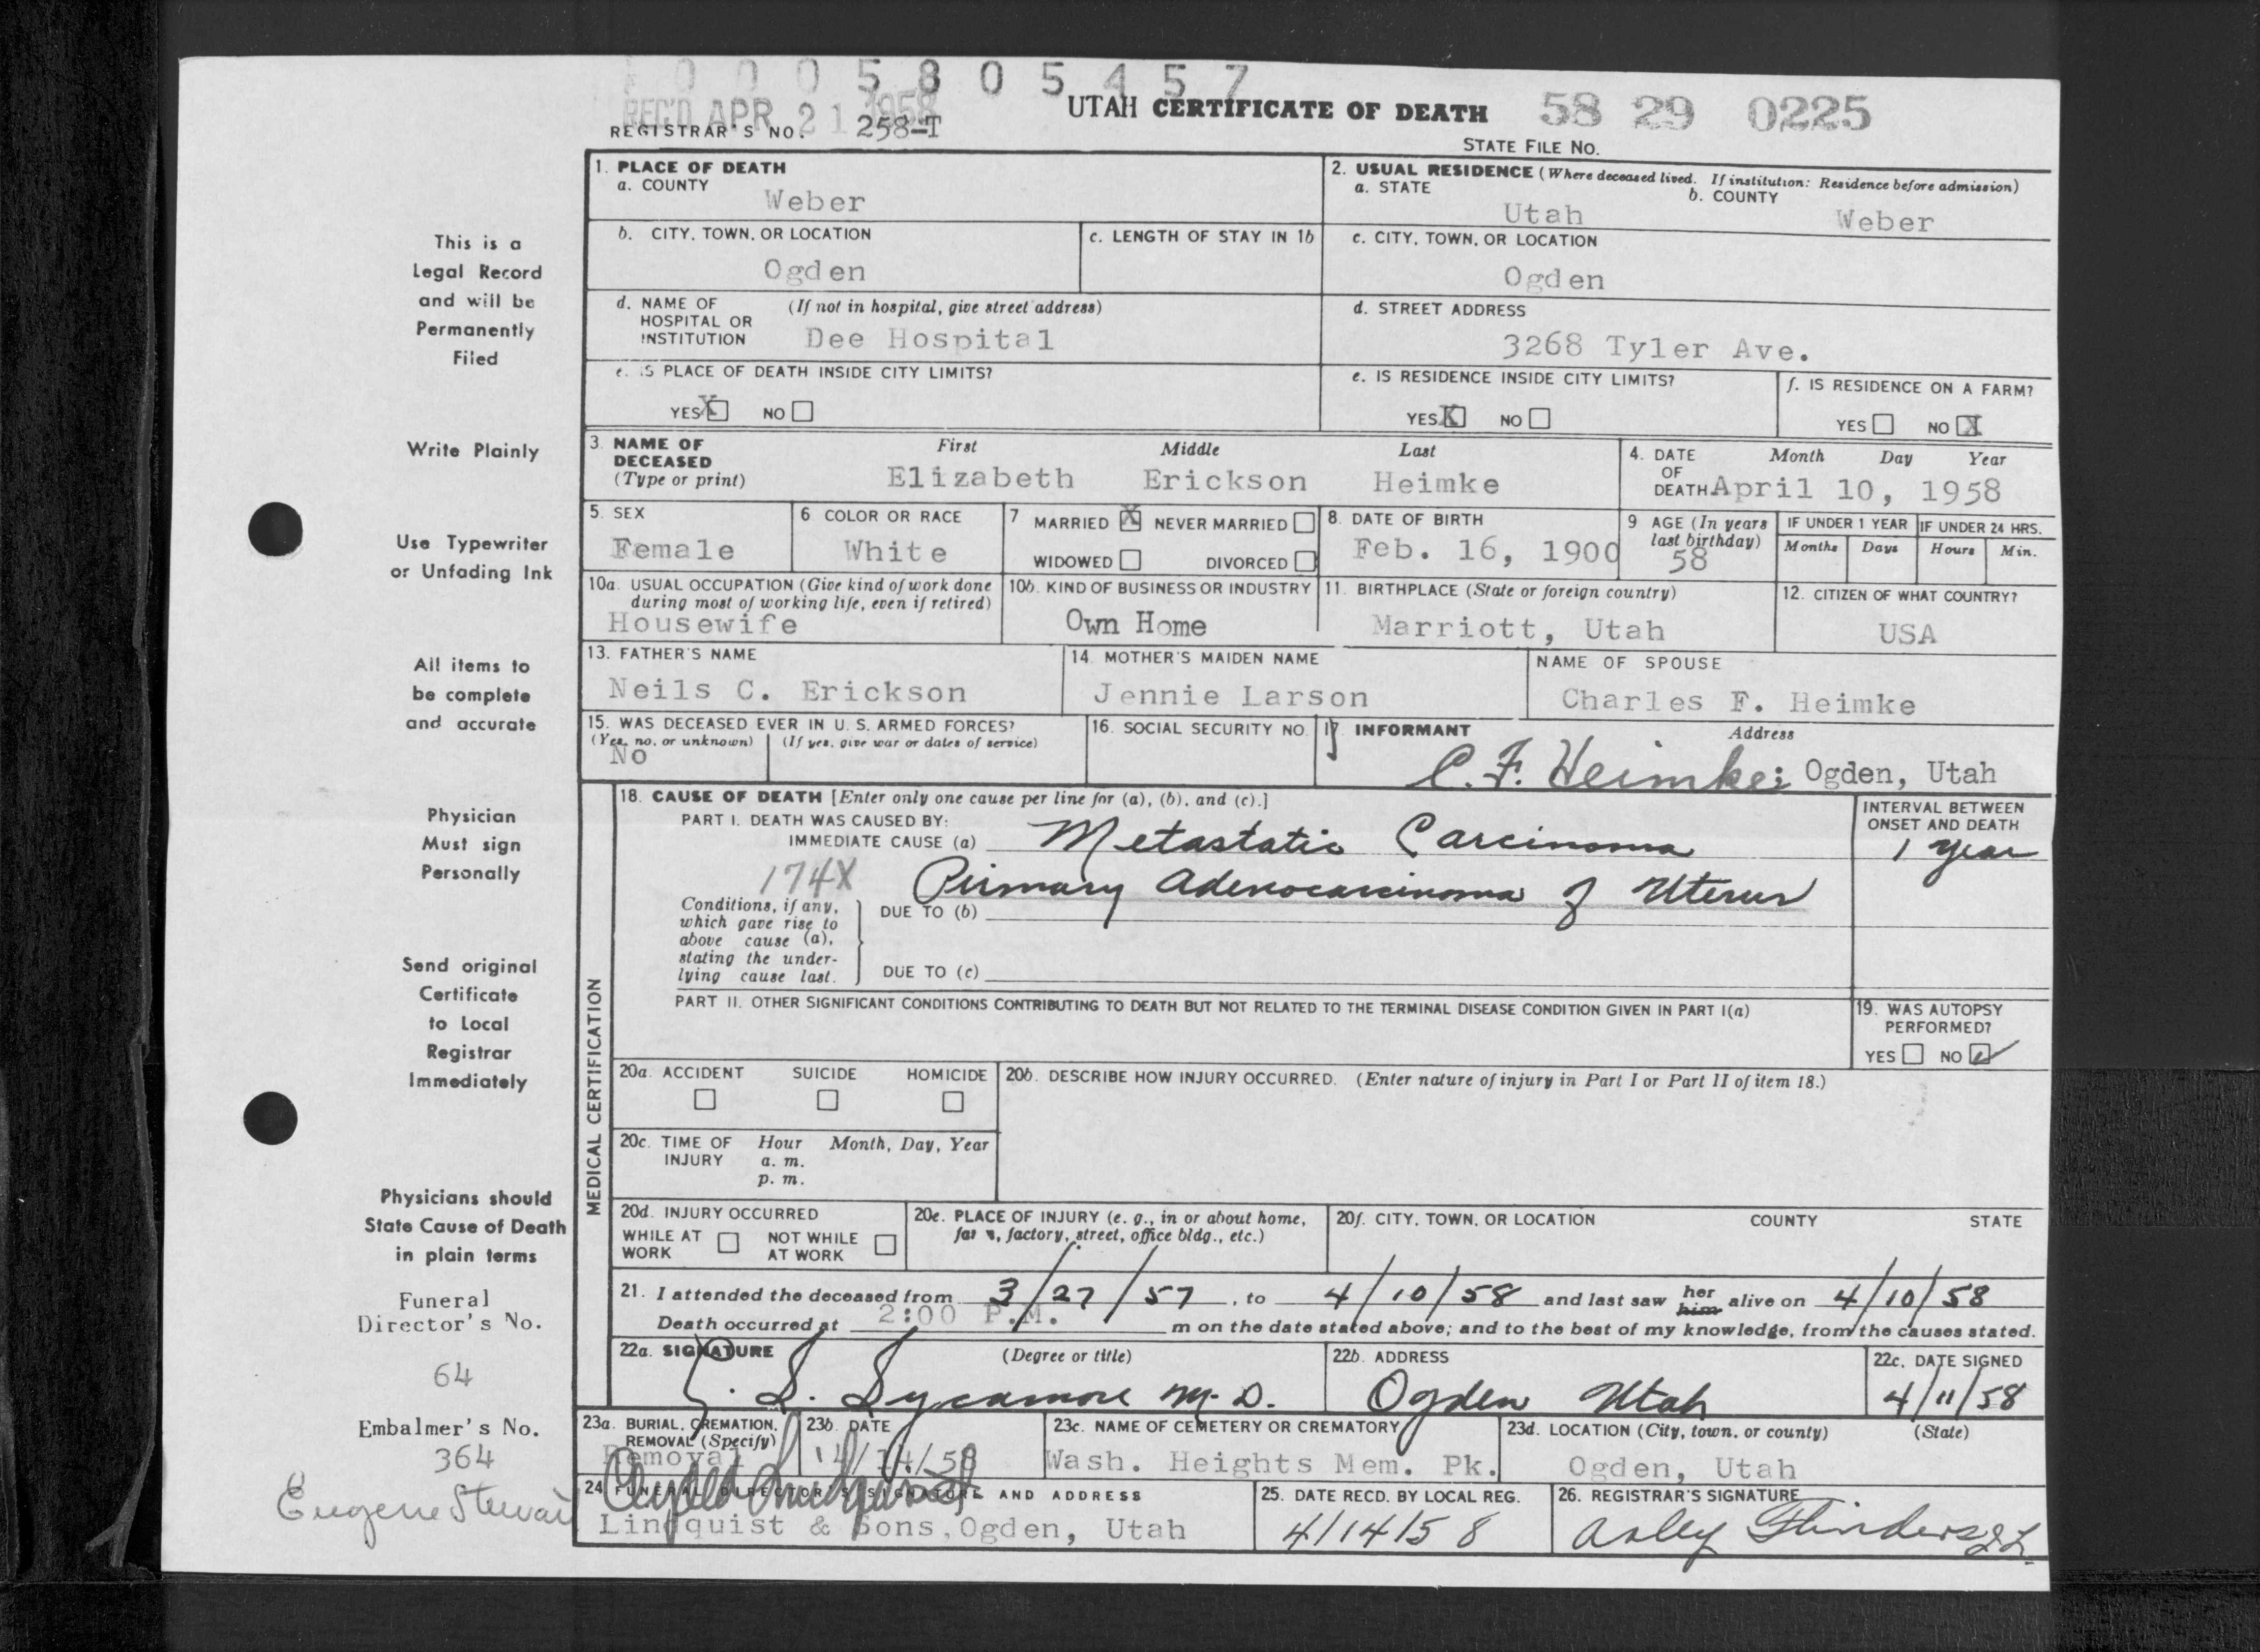 0 0 0 5 8 0 5 4 5 7
REC'D APR 21 1958
UTAH CERTIFICATE OF DEATH 58 29 0225
REGISTRAR'S NO. 258-T
STATE FILE NO.
1. PLACE OF DEATH
a. COUNTY
Weber
2. USUAL RESIDENCE (Where deceased lived. If institution: Residence before admission)
a. STATE
Utah
b. COUNTY
Weber
b. CITY, TOWN, OR LOCATION
Ogden
c. LENGTH OF STAY IN 1b
c. CITY, TOWN, OR LOCATION
Ogden
d. NAME OF HOSPITAL OR INSTITUTION
(If not in hospital, give street address)
Dee Hospital
d. STREET ADDRESS
3268 Tyler Ave.
e. IS PLACE OF DEATH INSIDE CITY LIMITS?
YES X NO
e. IS RESIDENCE INSIDE CITY LIMITS?
YES X NO
f. IS RESIDENCE ON A FARM?
YES NO X
3. NAME OF DECEASED (Type or print)
First Middle Last
Elizabeth Erickson Heimke
4. DATE OF DEATH
Month Day Year
April 10, 1958
5. SEX
Female
6 COLOR OR RACE
White
7 MARRIED X NEVER MARRIED
WIDOWED DIVORCED
8. DATE OF BIRTH
Feb. 16, 1900
9 AGE (In years last birthday)
58
IF UNDER 1 YEAR
Months Days
IF UNDER 24 HRS.
Hours Min.
10a. USUAL OCCUPATION (Give kind of work done
during most of working life, even if retired)
Housewife
10b. KIND OF BUSINESS OR INDUSTRY
Own Home
11. BIRTHPLACE (State or foreign country)
Marriott, Utah
12. CITIZEN OF WHAT COUNTRY?
USA
13. FATHER'S NAME
Neils C. Erickson
14. MOTHER'S MAIDEN NAME
Jennie Larson
NAME OF SPOUSE
Charles F. Heimke
15. WAS DECEASED EVER IN U. S. ARMED FORCES?
(Yes, no, or unknown) (If yes, give war or dates of service)
No
16. SOCIAL SECURITY NO.
17. INFORMANT Address
C. F. Heimke; Ogden, Utah
MEDICAL CERTIFICATION
18. CAUSE OF DEATH [Enter only one cause per line for (a), (b), and (c).]
PART I. DEATH WAS CAUSED BY:
IMMEDIATE CAUSE (a) Metastatic Carcinoma
INTERVAL BETWEEN
ONSET AND DEATH
1 Year
174X
Primary Adenocarcinoma of Uterus
Conditions, if any,
which gave rise to
above cause (a),
stating the under-
lying cause last.
DUE TO (b)
DUE TO (c)
PART II. OTHER SIGNIFICANT CONDITIONS CONTRIBUTING TO DEATH BUT NOT RELATED TO THE TERMINAL DISEASE CONDITION GIVEN IN PART I(a)
19. WAS AUTOPSY
PERFORMED?
YES NO ✓
20a. ACCIDENT SUICIDE HOMICIDE
20b. DESCRIBE HOW INJURY OCCURRED. (Enter nature of injury in Part I or Part II of item 18.)
20c. TIME OF INJURY
Hour Month, Day, Year
a. m.
p. m.
20d. INJURY OCCURRED
WHILE AT WORK NOT WHILE AT WORK
20e. PLACE OF INJURY (e. g., in or about home,
farm, factory, street, office bldg., etc.)
20f. CITY, TOWN, OR LOCATION COUNTY STATE
21. I attended the deceased from 3/27/57, to 4/10/58 and last saw her him alive on 4/10/58
Death occurred at 2:00 P.M. m on the date stated above; and to the best of my knowledge, from the causes stated.
22a. SIGNATURE (Degree or title)
L. S. Sycamore M.D.
22b. ADDRESS
Ogden Utah
22c. DATE SIGNED
4/11/58
23a. BURIAL, CREMATION,
REMOVAL (Specify)
Removal
23b. DATE
4/14/58
23c. NAME OF CEMETERY OR CREMATORY
Wash. Heights Mem. Pk.
23d. LOCATION (City, town, or county) (State)
Ogden, Utah
24 FUNERAL DIRECTOR'S SIGNATURE AND ADDRESS
Lindquist & Sons, Ogden, Utah
25. DATE RECD. BY LOCAL REG.
4/14/58
26. REGISTRAR'S SIGNATURE
This is a
Legal Record
and will be
Permanently
Filed
Write Plainly
Use Typewriter
or Unfading Ink
All items to
be complete
and accurate
Physician
Must sign
Personally
Send original
Certificate
to Local
Registrar
Immediately
Physicians should
State Cause of Death
in plain terms
Funeral
Director's No.
64
Embalmer's No.
364
Eugene